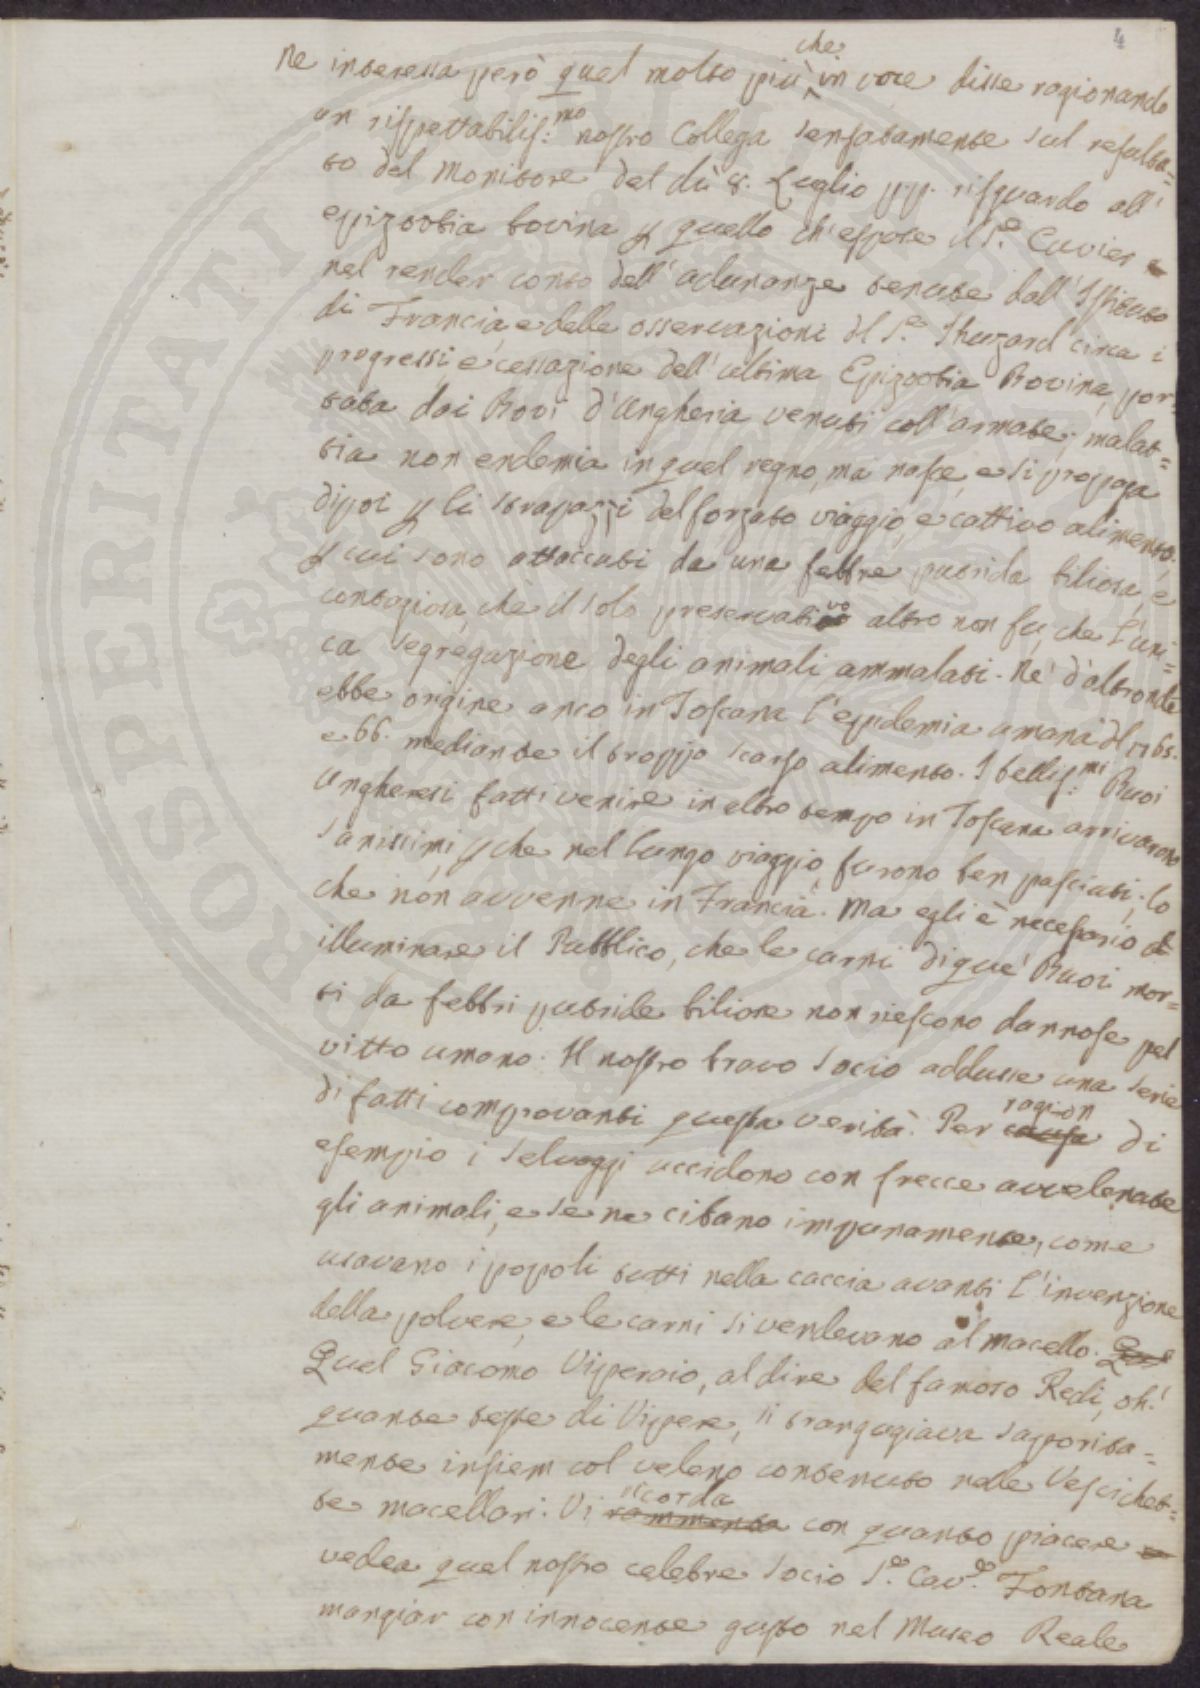 4
Ne interessa però quel molto più che in voce disse ragionando
un rispettabilis:mo nostro Collega sensatamente sul resulta=
to del Monitore del dì 8. Luglio pp. risguardo all'
epizootia bovina p quello ch'espose il Sr. Cuvier
nel render conto dell'adunanze tenute dall'Istituto
di Francia, e delle osservazioni del Sr. Huzard circa i
progressi, e cessazione dell'ultima Epizootia Bovina, por=
tata dai Bovi d'Ungheria venuti coll'armate; malat=
tia non endemia in quel regno, ma nasce, e si propaga
dipoi p li strapazzi del forzato viaggio, e cattivo alimento;
p cui sono attaccati da una febbre putrida biliosa, e
contagiosa, che il solo preservativo altro non fu, che l'uni=
ca segregazione degli animali ammalati. Nè d'altronde
ebbe origine anco in Toscana l'epidemia umana del 1765.
e 66. mediante il troppo scarso alimento. I bellis:mi Buoi
Ungheresi fatti venire in altro tempo in Toscana arrivarono
sanissimi, p che nel lungo viaggio, furono ben pasciuti; lo
che non avvenne in Francia. Ma egli è necessario d
illuminare il Pubblico, che le carni di que' Buoi mor=
ti da febbri putride biliose non riescono dannose pel
vitto umano. Il nostro bravo Socio addusse una serie
di fatti comprovanti questa verità. Per causa ragion di
esempio i selvaggi uccidono con frecce avvelenate
gli animali, e se ne cibano impunamente, come
usavano i popoli tutti nella caccia avanti l'invenzione
della polvere, e le carni si vendevano al macello. Quel
Quel Giacomo Viperaio, al dire del famoso Redi, oh!
quante teste di Vipere, si trangugiava saporita=
mente insiem col veleno contenuto nelle Vescichet=
te mascellari. Vi rammenta ricorda con quanto piacere
vedea quel nostro celebre Socio Sr. Cavr. Fontana
mangiar con innocente gusto nel Museo Reale